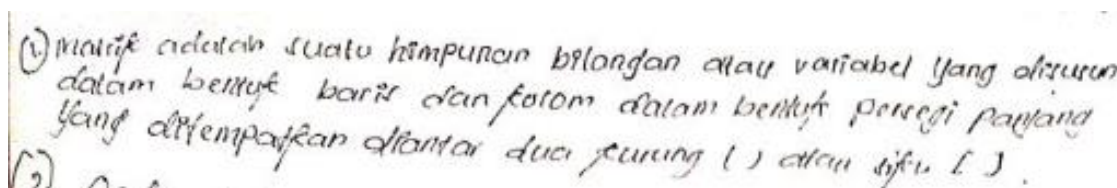 ① Matrik adalah suatu himpunan bilangan atau variabel yang disusun
dalam bentuk baris dan kolom dalam bentuk persegi panjang
yang ditempatkan diantar dua kurung ( ) atau siku [ ].
②